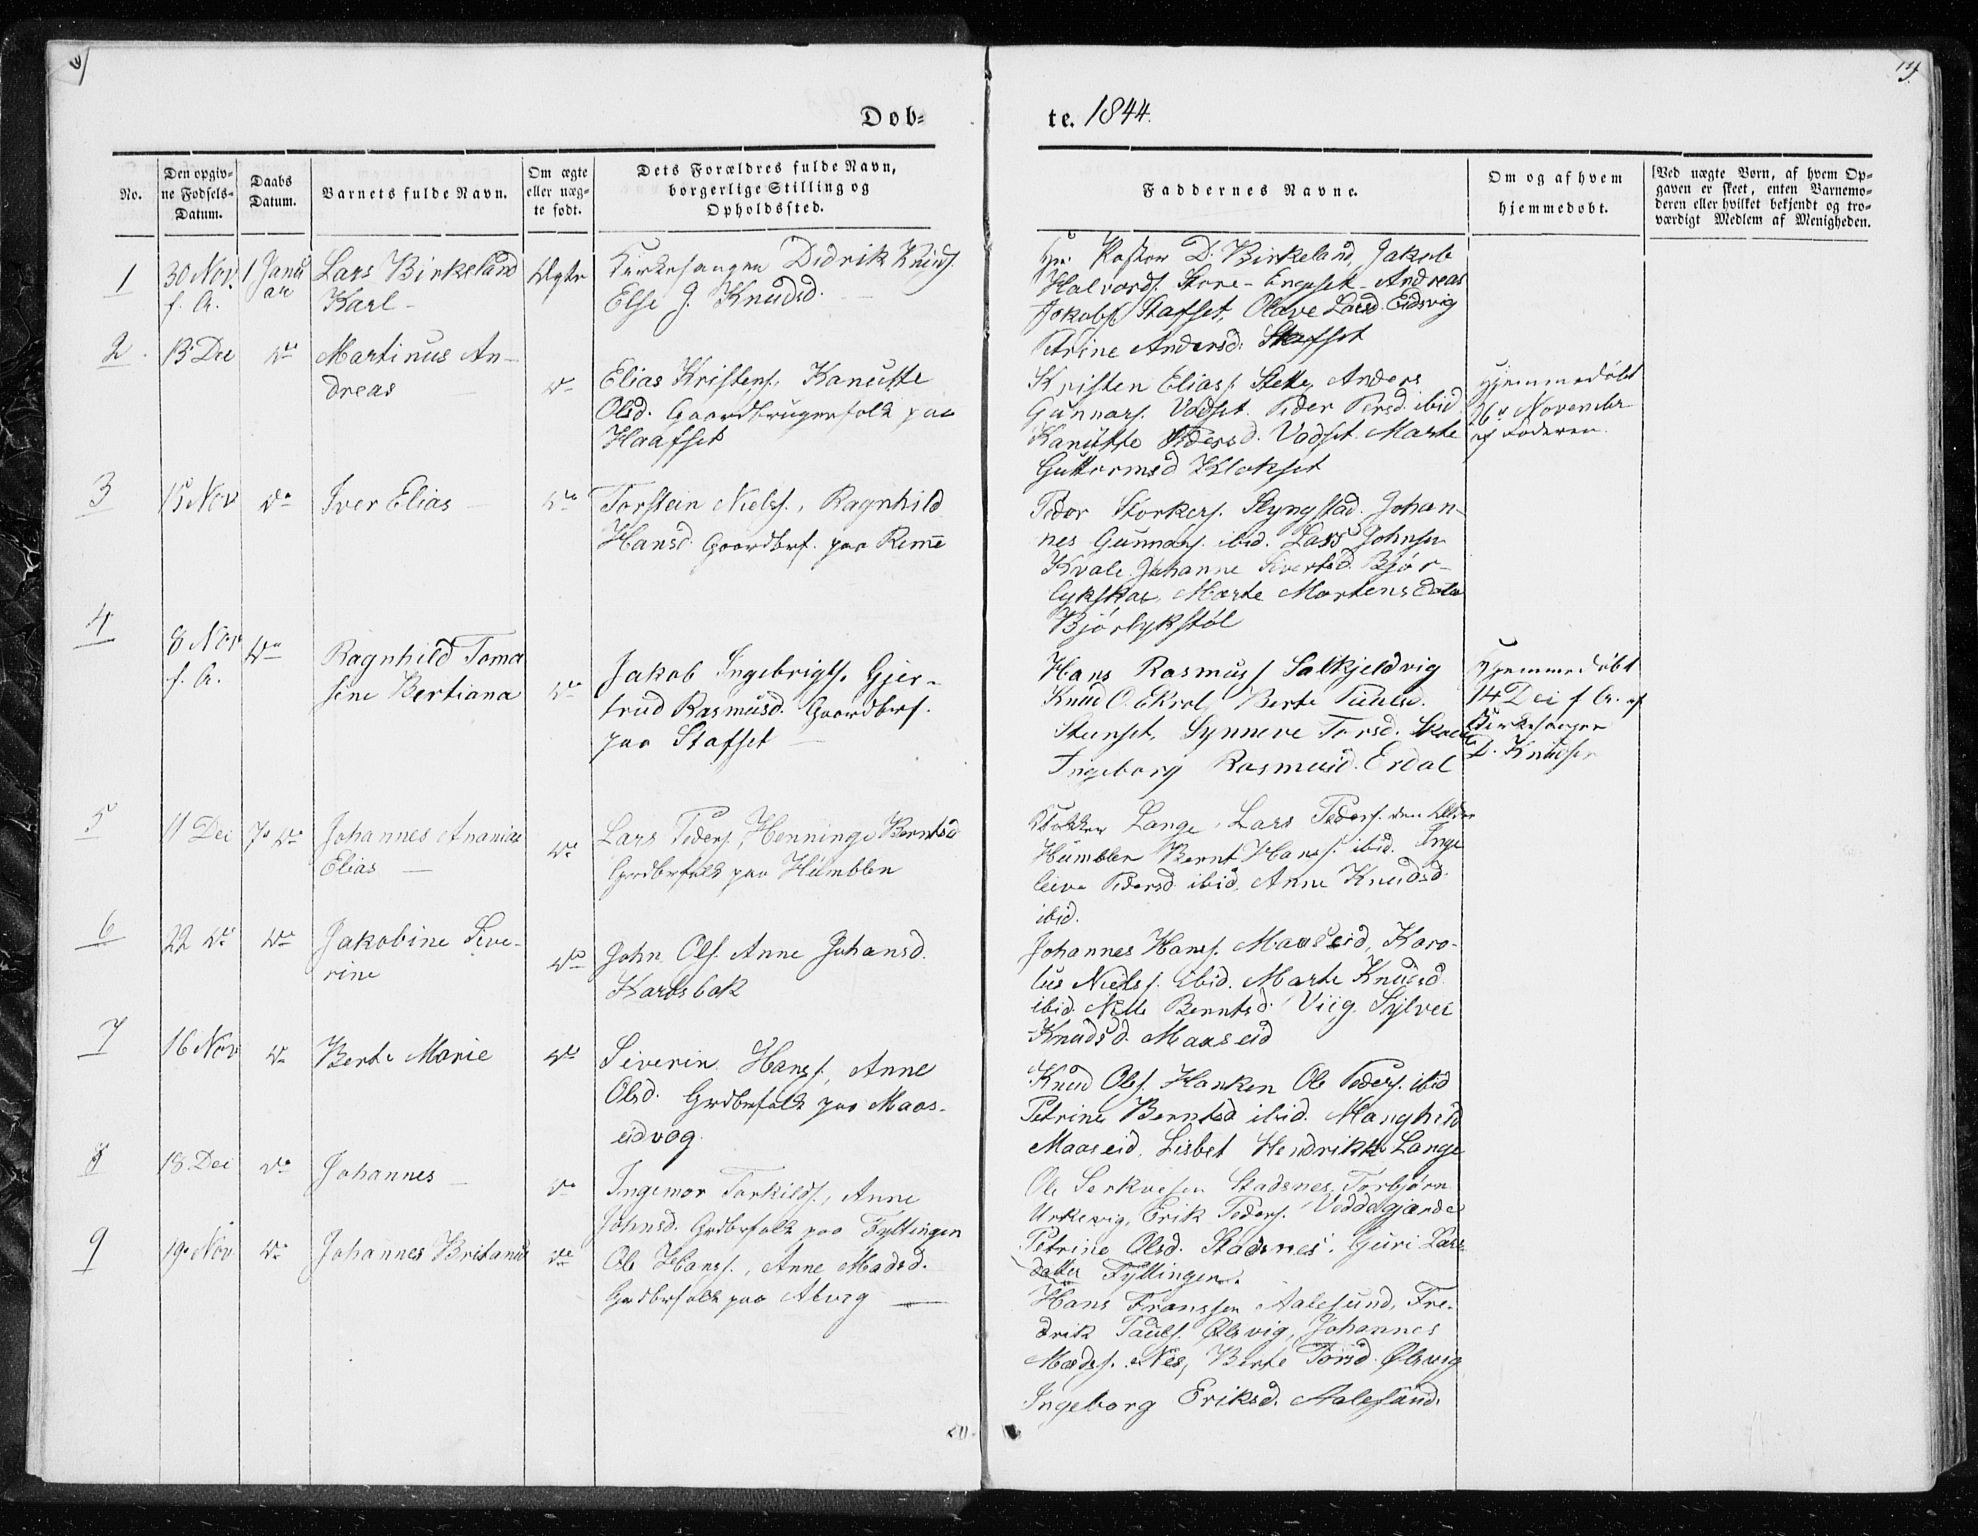 Døb-
te. 1844.
No.
Den opgiv-
ne Fødsels-
Datum.
Daabs
Datum.
Barnets fulde Navn.
Om ægte
eller uæg-
te født.
Dets Forældres fulde Navn,
borgerlige Stilling og
Opholdssted.
Faddernes Navne.
Om og af hvem
hjemmedøbt.
[Ved uægte Børn, af hvem Op-
gaven er skeet, enten Barnemo-
deren eller hvilket bekjendt og tro-
værdigt Medlem af Menigheden.
1
30 Nov.
f. A.
1 Janu
ar
Lars Birkeland
Karl -
Ægte
Kirkesanger Didrik Knuds.
Else J. Knudsd.
Hr. Pastor D. Birkeland, Jakob
Halvords. Store-Engeset - Andreas
Jakobs. Stafset, Olave Larsd. Eidsvig
Petrine Andersd. Stafset
2
13 Dec
do
Martinus An-
dreas
do
Elias Kristens, Kanutte
Olsd. Gaardbrugerfolk paa
Haafset
Kristen Eliass. Slette, Anders
Gunnars. Vadset. Peder Persd. ibid
Kanutte Pedersd. Vadset. Marte
Guttormsd Klokset
Hjemmedøbt
Novembr
af Faderen.
3
15 Nov
do
Iver Elias
do
Torstein Niels., Ragnhild
Hansd. Gaardbrf. paa Reme
Peder Storkers. Slyngstad. Johan-
nes Gunnars. ibid. Lars Johnsen
Kvale. Johanne Sivertsd. Bjør-
lykskar, Marte Mortensdatter
Bjørlykstøl
4
8 Nov
f. A.
do
Ragnhild Toma
sine Bertiana
do
Jakob Ingebrigts. Gjer-
trud Rasmusd. Gaardbrf.
paa Stafset
Hans Rasmuss Salkjeldvig
Knud O. Ekrol, Berte Paulsd.
Stenset, Synneve Torsd.
Ingeborg Rasmusd. Erdal
Hjemmedøbt
14 Dec f A. af
Kirkesanger
D. Knudsen
5
11 Dec
7de do
Johannes Ananias
Elias
do
Lars Peders, Henninge Berntsd
Grdbrfolk paa Humblen
Klokker Lange, Lars Peders. den Ældre
Humblen Bernt Hans. ibid. Inge
leive Pedersd ibid, Anne Knudsd
ibid.
6
22 do
do
Jakobine Seve-
rine
do
John Ols. Anne Johansd.
Karlsbak
Johannes Hans. Maaseid, Karo-
lus Niels. ibid. Marte Knudsd
ibid. Nille Berntsd. Viig. Sylvei
Knudsd. Maaseid
7
16 Nov
do
Berte Marie
do
Severin Hanss, Anne
Olsd. Grdbrfolk paa Maas-
eidvog
Knud Ols. Hanken Ole Peders. ibid
Petrine Berntsd ibid. Manghild
Maaseid. Lisbet Hendrikke Lange
8
18 Dec
do
Johannes
do
Ingemor Torkilds., Anne
Johnsd. Grdbrfolk paa Fyllingen
Ole Serkvesen Stadsnes, Torbjørn
Urkevig, Erik Peders. Veddegjerde
Petrine Olsd. Stadsnes. Guri Lars
datter Fyllingen.
9
19 Nov
do
Johannes Britanus
do
Ole Hanss., Anne Madsd.
Grdbrfolk paa Alvig
Hans Franssen Aalesund, Fre-
drik Pauls. Ølsvig, Johannes
Madss. Nes, Berte Torsd. Ølsvig
Ingeborg Eriksd. Aalesund.